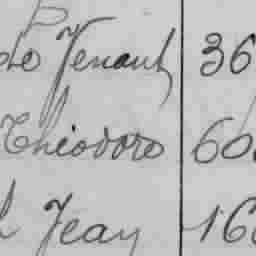 Le Venant 36
Théodore 60
Jean 160